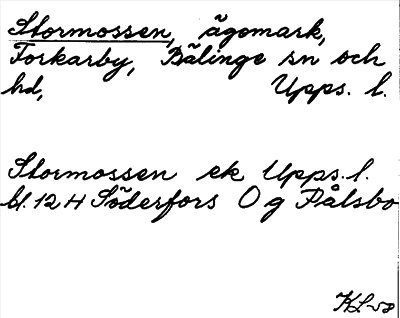 Stormossen, ägomark,
Forkarby, Bälinge sn och
hd, Upps. l.
Stormossen ek Upps. l.
bl. 12 H Söderfors O g Pålsbo
KL-58